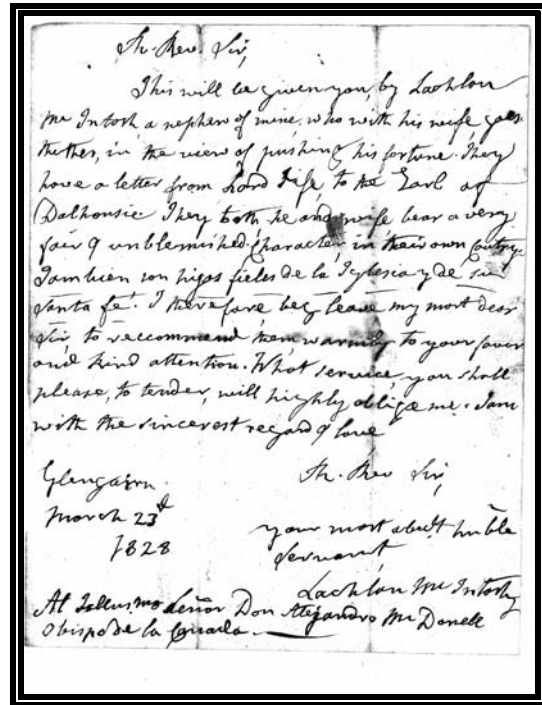 Rt. Rev. Sir,
This will be given you, by Lachlan
Mc Intosh a nephew of mine, who with his wife goes
thither, in the view of pushing his fortune. They
have a letter from Lord Fife, to the Earl of
Dalhousie They both he and wife bear a very
fair & unblemished character in their own Contry.
Tambien son higos fieles de la Iglesia y de su
santa fé. I therefore beg leave my most dear
Sir, to reccommend them warmly to your favor
and kind attention. What service, you shall
please, to tender, will highly oblige me. I am
with the sincerest regard & love
Rt. Rev Sir,
Glengairn
March 23d
1828
your most obedt. humble
servant
Lachlan Mc Intosh
Al Illusmo Señor Don Alejandro Mc Donell
Obispo de la Canada.